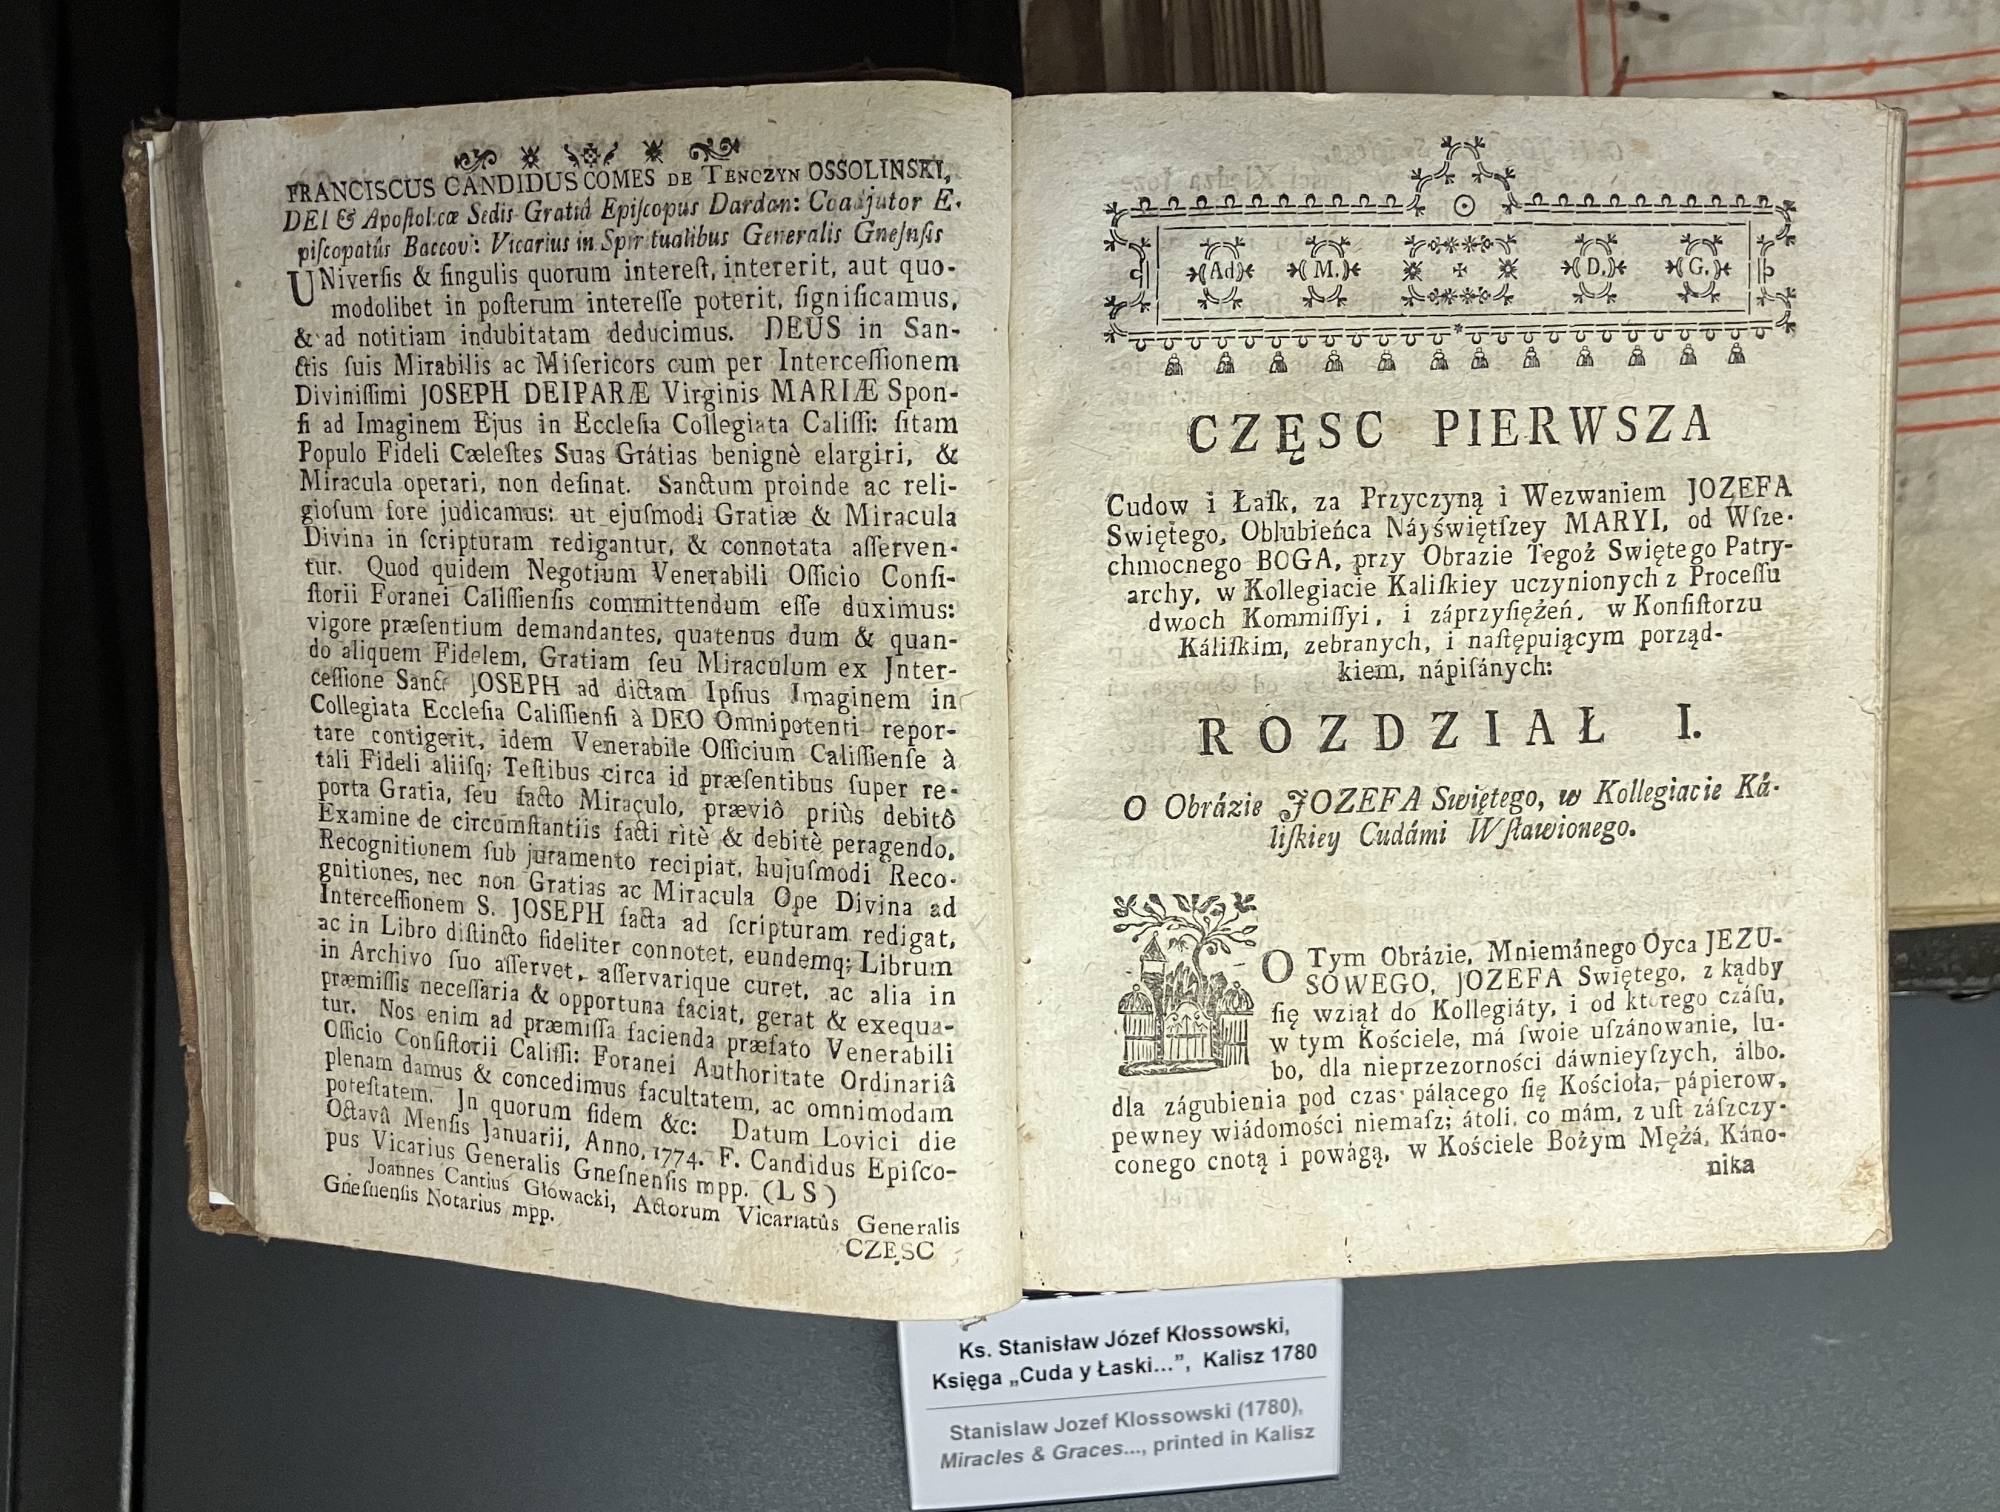 FRANCISCUS CANDIDUS COMES DE TENCZYN OSSOLINSKI,
DEI & Apoſtolicæ Sedis Gratiâ Epiſcopus Dardan: Coadjutor E-
piſcopatûs Baccov: Vicarius in Spiritualibus Generalis Gneſnſis
UNiverſis & ſingulis quorum intereſt, intererit, aut quo-
modolibet in poſterum intereſſe poterit, ſignificamus,
& ad notitiam indubitatam deducimus. DEUS in San-
ctis ſuis Mirabilis ac Miſericors cum per Interceſſionem
Diviniſſimi JOSEPH DEIPARÆ Virginis MARIÆ Spon-
ſi ad Imaginem Ejus in Eccleſia Collegiata Caliſſi: ſitam
Populo Fideli Cæleſtes Suas Grátias benignè elargiri, &
Miracula operari, non deſinat. Sanctum proinde ac reli-
gioſum fore judicamus: ut ejuſmodi Gratiæ & Miracula
Divina in ſcripturam redigantur, & connotata aſſerven-
tur. Quod quidem Negotium Venerabili Officio Conſi-
ſtorii Foranei Caliſſienſis committendum eſſe duximus:
vigore præſentium demandantes, quatenus dum & quan-
do aliquem Fidelem, Gratiam ſeu Miraculum ex Jnter-
ceſſione Sanct: JOSEPH ad dictam Ipſius Imaginem in
Collegiata Eccleſia Caliſſienſi à DEO Omnipotenti repor-
tare contigerit, idem Venerabile Officium Caliſſienſe à
tali Fideli aliiſq; Teſtibus circa id præſentibus ſuper re-
porta Gratia, ſeu facto Miraculo, præviô priùs debitô
Examine de circumſtantiis facti ritè & debitè peragendo,
Recognitionem ſub juramento recipiat, hujuſmodi Reco-
gnitiones, nec non Gratias ac Miracula Ope Divina ad
Interceſſionem S. JOSEPH facta ad ſcripturam redigat,
ac in Libro diſtincto fideliter connotet, eundemq; Librum
in Archivo ſuo aſſervet, aſſervarique curet, ac alia in
præmiſſis neceſſaria & opportuna faciat, gerat & exequa-
tur. Nos enim ad præmiſſa facienda præfato Venerabili
Officio Conſiſtorii Caliſſi: Foranei Authoritate Ordinariâ
plenam damus & concedimus facultatem, ac omnimodam
poteſtatem. Jn quorum fidem &c: Datum Lovici die
Octavâ Menſis Januarii, Anno, 1774. F. Candidus Epiſco-
pus Vicarius Generalis Gneſnenſis mpp. (L S)
Joannes Cantius Głowacki, Actorum Vicariatûs Generalis
Gneſnenſis Notarius mpp.
CZĘSC
Ad M. D. G.
CZĘSC PIERWSZA
Cudow i Łaſk, za Przyczyną i Wezwaniem JOZEFA
Swiętego, Oblubieńca Náyświętſzey MARYI, od Wſze-
chmocnego BOGA, przy Obrazie Tegoż Swiętego Patry-
archy, w Kollegiacie Kaliſkiey uczynionych z Proceſſu
dwoch Kommiſſyi, i záprzyſiężeń, w Konſiſtorzu
Káliſkim, zebranych, i naſtępuiącym porząd-
kiem, nápiſánych:
ROZDZIAŁ I.
O Obrázie JOZEFA Swiętego, w Kollegiacie Ká-
liſkiey Cudámi Wſławionego.
O Tym Obrázie, Mniemánego Oyca JEZU-
SOWEGO, JOZEFA Swiętego, z kądby
ſię wziął do Kollegiáty, i od ktorego czáſu,
w tym Kościele, má ſwoie uſzánowanie, lu-
bo, dla nieprzezorności dáwnieyſzych, álbo.
dla zágubienia pod czas pálącego ſię Kościoła, pápierow,
pewney wiádomości niemaſz; átoli, co mám, z uſt záſzczy-
conego cnotą i powágą, w Kościele Bożym Mężá, Káno-
nika
Ks. Stanisław Józef Kłossowski,
Księga „Cuda y Łaski...”, Kalisz 1780
Stanislaw Jozef Klossowski (1780),
Miracles & Graces..., printed in Kalisz